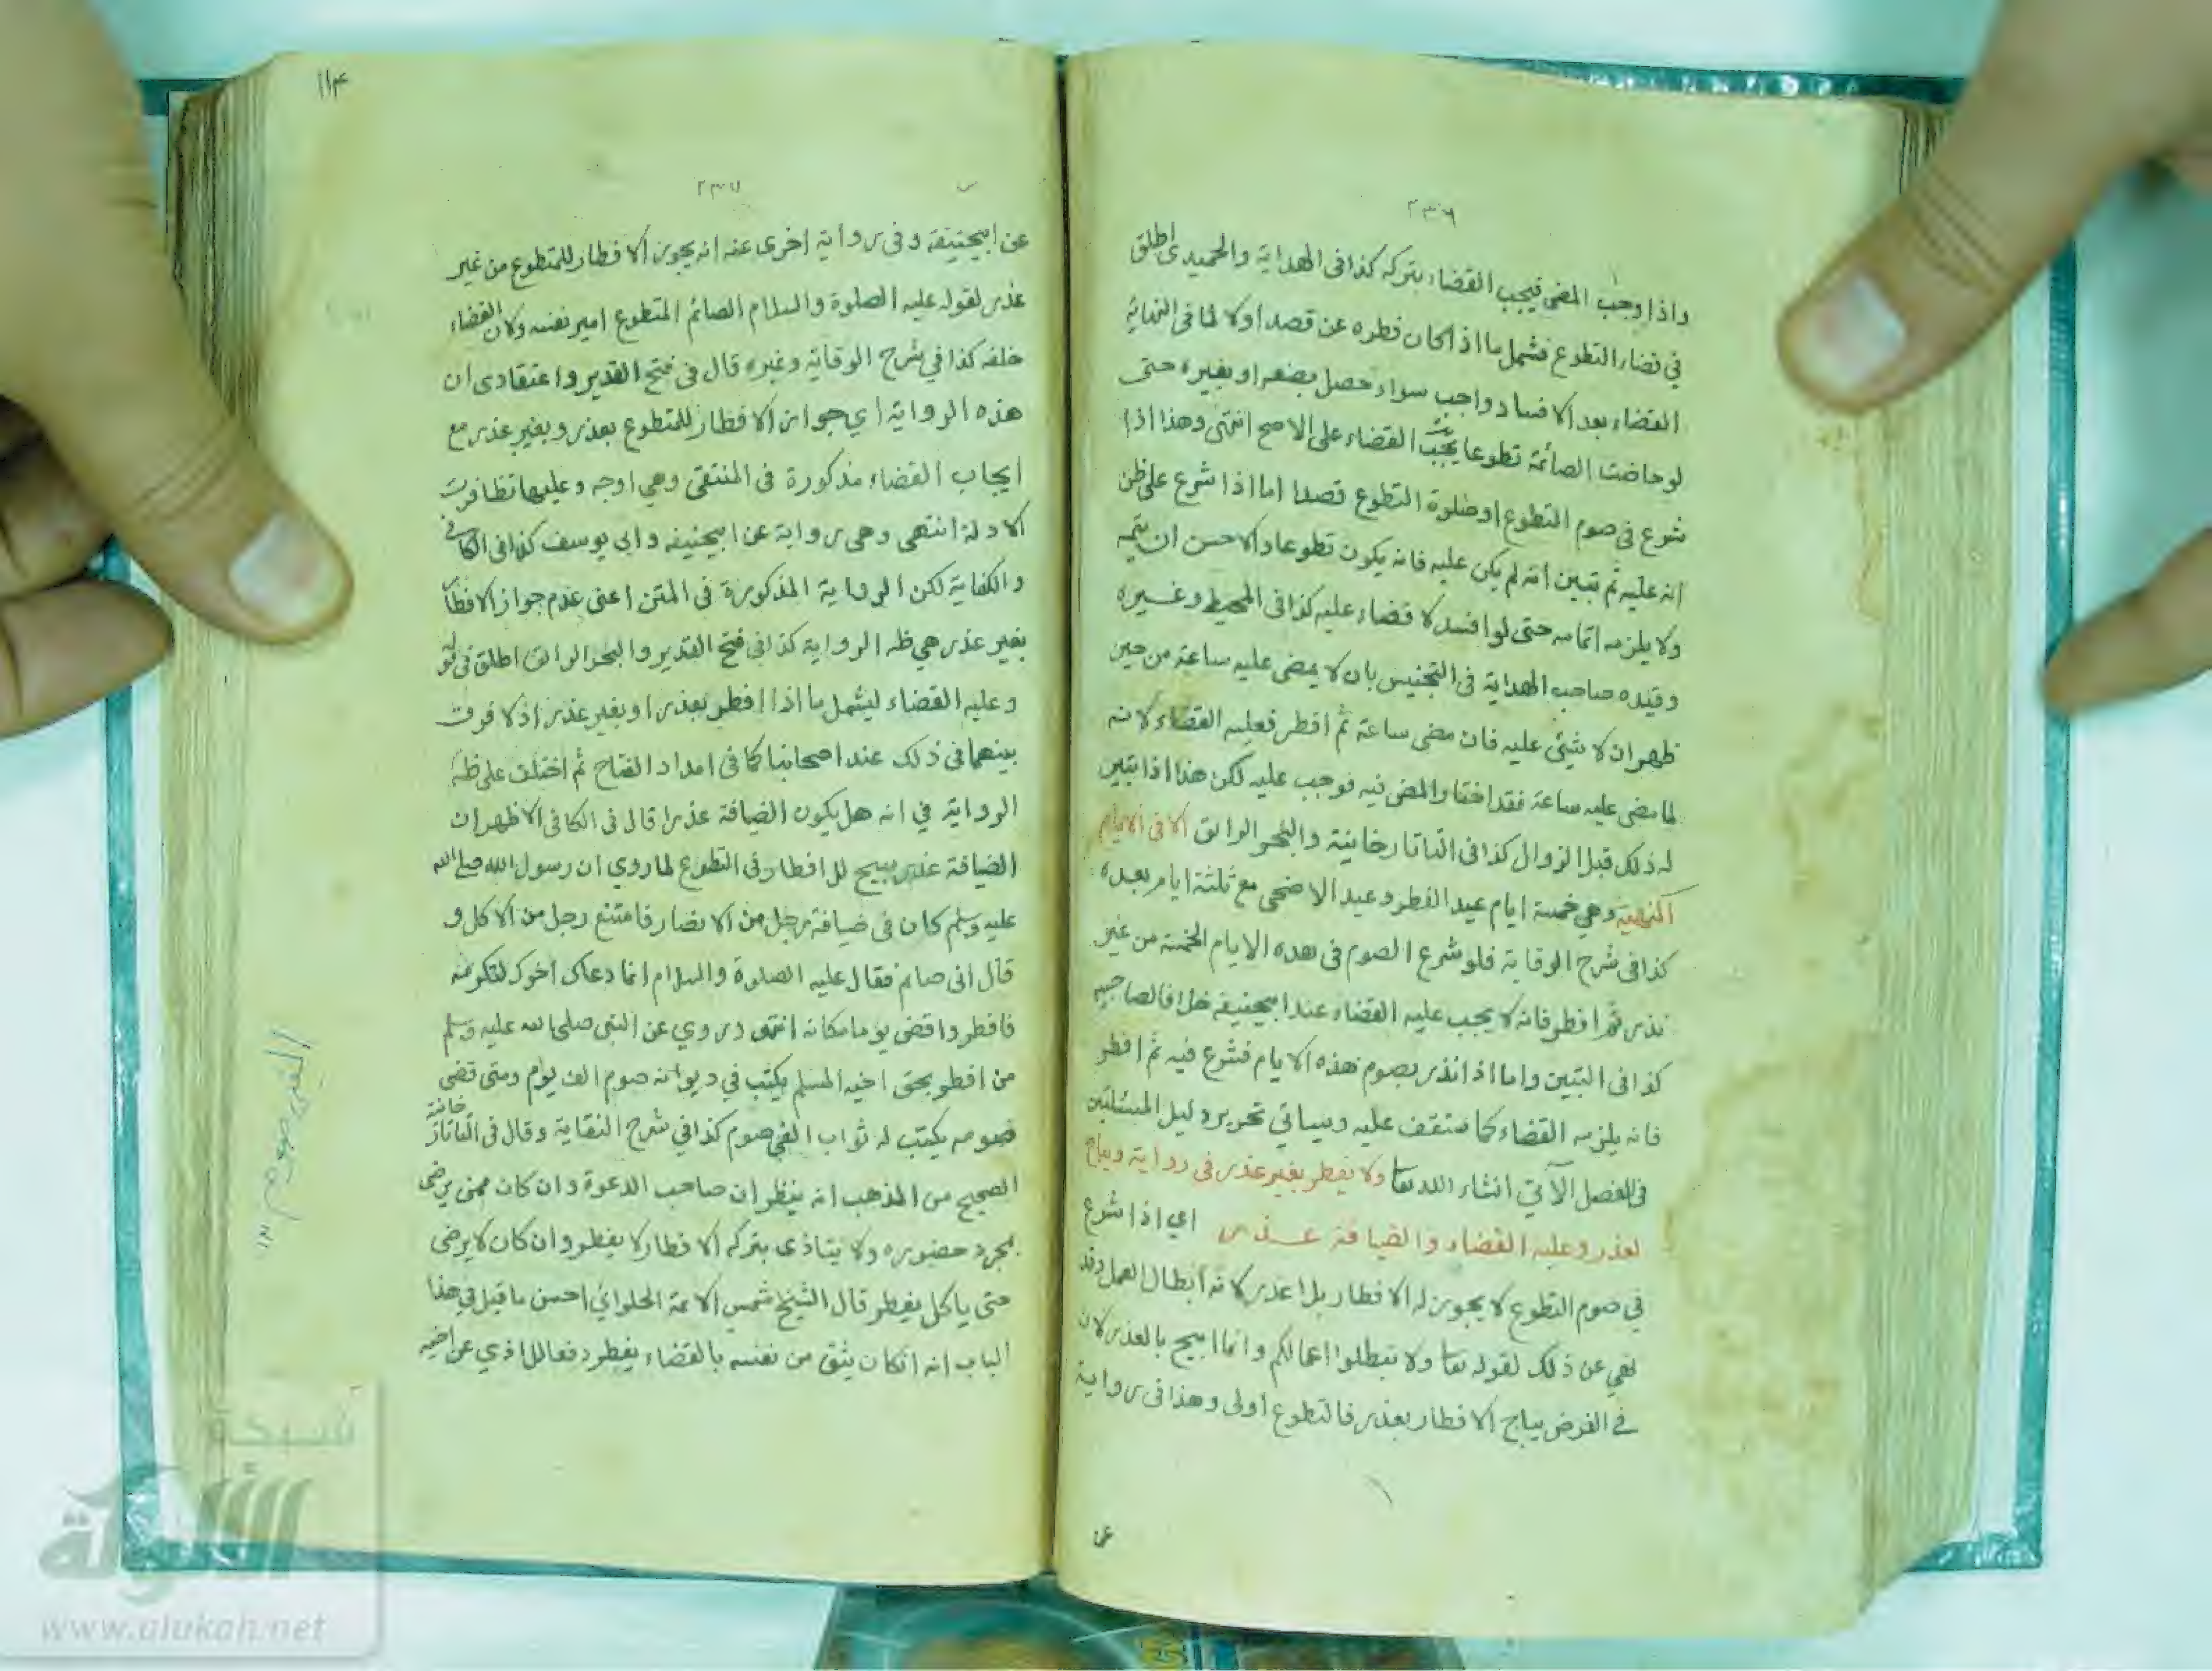 ٢٣٦
واذا وجب المضي فيجب القضاء بتركه كذا في الهداية والحميدي اطلق
في قضاء التطوع فشمل ما اذا كان فطره عن قصد اولا لما في النهاية
القضاء بعد الافساد واجب سواء حصل بصنعه او بغيره حتى
لو حاضت الصائمة تطوعا يجب القضاء على الاصح انتهى وهذا اذا
شرع في صوم التطوع او صلوة التطوع قصدا اما اذا شرع على ظن
انه عليه ثم تبين انه لم يكن عليه فانه يكون تطوعا والاحسن ان يتمه
ولا يلزمه اتمامه حتى لو افسد لا قضاء عليه كذا في المحيط وغيره
وقيده صاحب الهداية في التجنيس بان لا يمضي عليه ساعة من حين
ظهر ان لا شيئ عليه فان مضى ساعة ثم افطر فعليه القضاء لانه
لما مضى عليه ساعة فقد اختار المضي فيه فوجب عليه لكن هذا اذا تبين
له ذلك قبل الزوال كذا في التاتارخانية والبحر الرائق الا في الايام
المنهية وهي خمسة ايام عيد الفطر وعيد الاضحى مع ثلثة ايام بعده
كذا في شرح الوقاية فلو شرع الصوم في هذه الايام الخمسة من غير
نذر ثم افطر فانه لا يجب عليه القضاء عند ابيحنيفة خلافا لصاحبيه
كذا في التبيين واما اذا نذر بصوم هذه الايام فشرع فيه ثم افطر
فانه يلزمه القضاء كما ستقف عليه وسياتي تحرير دليل المسئلتين
في الفصل الآتي انشاء الله تعا ولا يفطر بغير عذر في رواية ويباح
لعذر وعليه القضاء والضيافة عذر اي اذا شرع
في صوم التطوع لا يجوز له الافطار بلا عذر لانه ابطال العمل وقد
نهي عن ذلك لقوله تعا ولا تبطلوا اعمالكم وانما ابيح بالعذر لان
في الفرض يباح الافطار بعذر فالتطوع اولى وهذا في رواية
عن
١١٤
٢٣٧
عن ابيحنيفة وفي رواية اخرى عنه انه يجوز الافطار للمتطوع من غير
عذر لقوله عليه الصلوة والسلام الصائم المتطوع امير نفسه ولان القضاء
خلفه كذا في شرح الوقاية وغيره قال في فتح القدير واعتقادي ان
هذه الرواية اي جواز الافطار للمتطوع بعذر وبغير عذر مع
ايجاب القضاء مذكورة في المنتقى وهي اوجه وعليها تظافرت
الادلة انتهى وهي رواية عن ابيحنيفة وابي يوسف كذا في الكافي
والكفاية لكن الرواية المذكورة في المتن اعني عدم جواز الافطار
بغير عذر هي ظه الرواية كذا في فتح القدير والبحر الرائق اطلق في قو
وعليه القضاء ليشمل ما اذا افطر بعذر او بغير عذر اذ لا فرق
بينهما في ذلك عند اصحابنا كما في امداد الفتاح ثم اختلف على ظه
الرواية في انه هل يكون الضيافة عذرا قال في الكافي الاظهر ان
الضيافة عذر مبيح للافطار في التطوع لما روي ان رسول الله صلى الله
عليه وسلم كان في ضيافة رجل من الانصار فامتنع رجل من الاكل و
قال اني صائم فقال عليه الصلوة والسلام انما دعاك اخوك لتكرمه
فافطر واقض يوما مكانه انتهى وروي عن النبي صلى الله عليه وسلم
من افطر بحق اخيه المسلم يكتب في ديوانه صوم الف يوم ومتى قضى
صومه يكتب له ثواب الفي صوم كذا في شرح النقاية وقال في التاتارخانية
الصحيح من المذهب انه ينظر ان صاحب الدعوة وان كان ممن يرضى
بمجرد حضوره ولا يتاذى بتركه الافطار لا يفطر وان كان لا يرضى
حتى ياكل يفطر قال الشيخ شمس الائمة الحلواني احسن ما قيل في هذا
الباب انه ان كان يثق من نفسه بالقضاء يفطر دفعا للاذي عن اخيه
شبكة
الألوكة
www.alukah.net